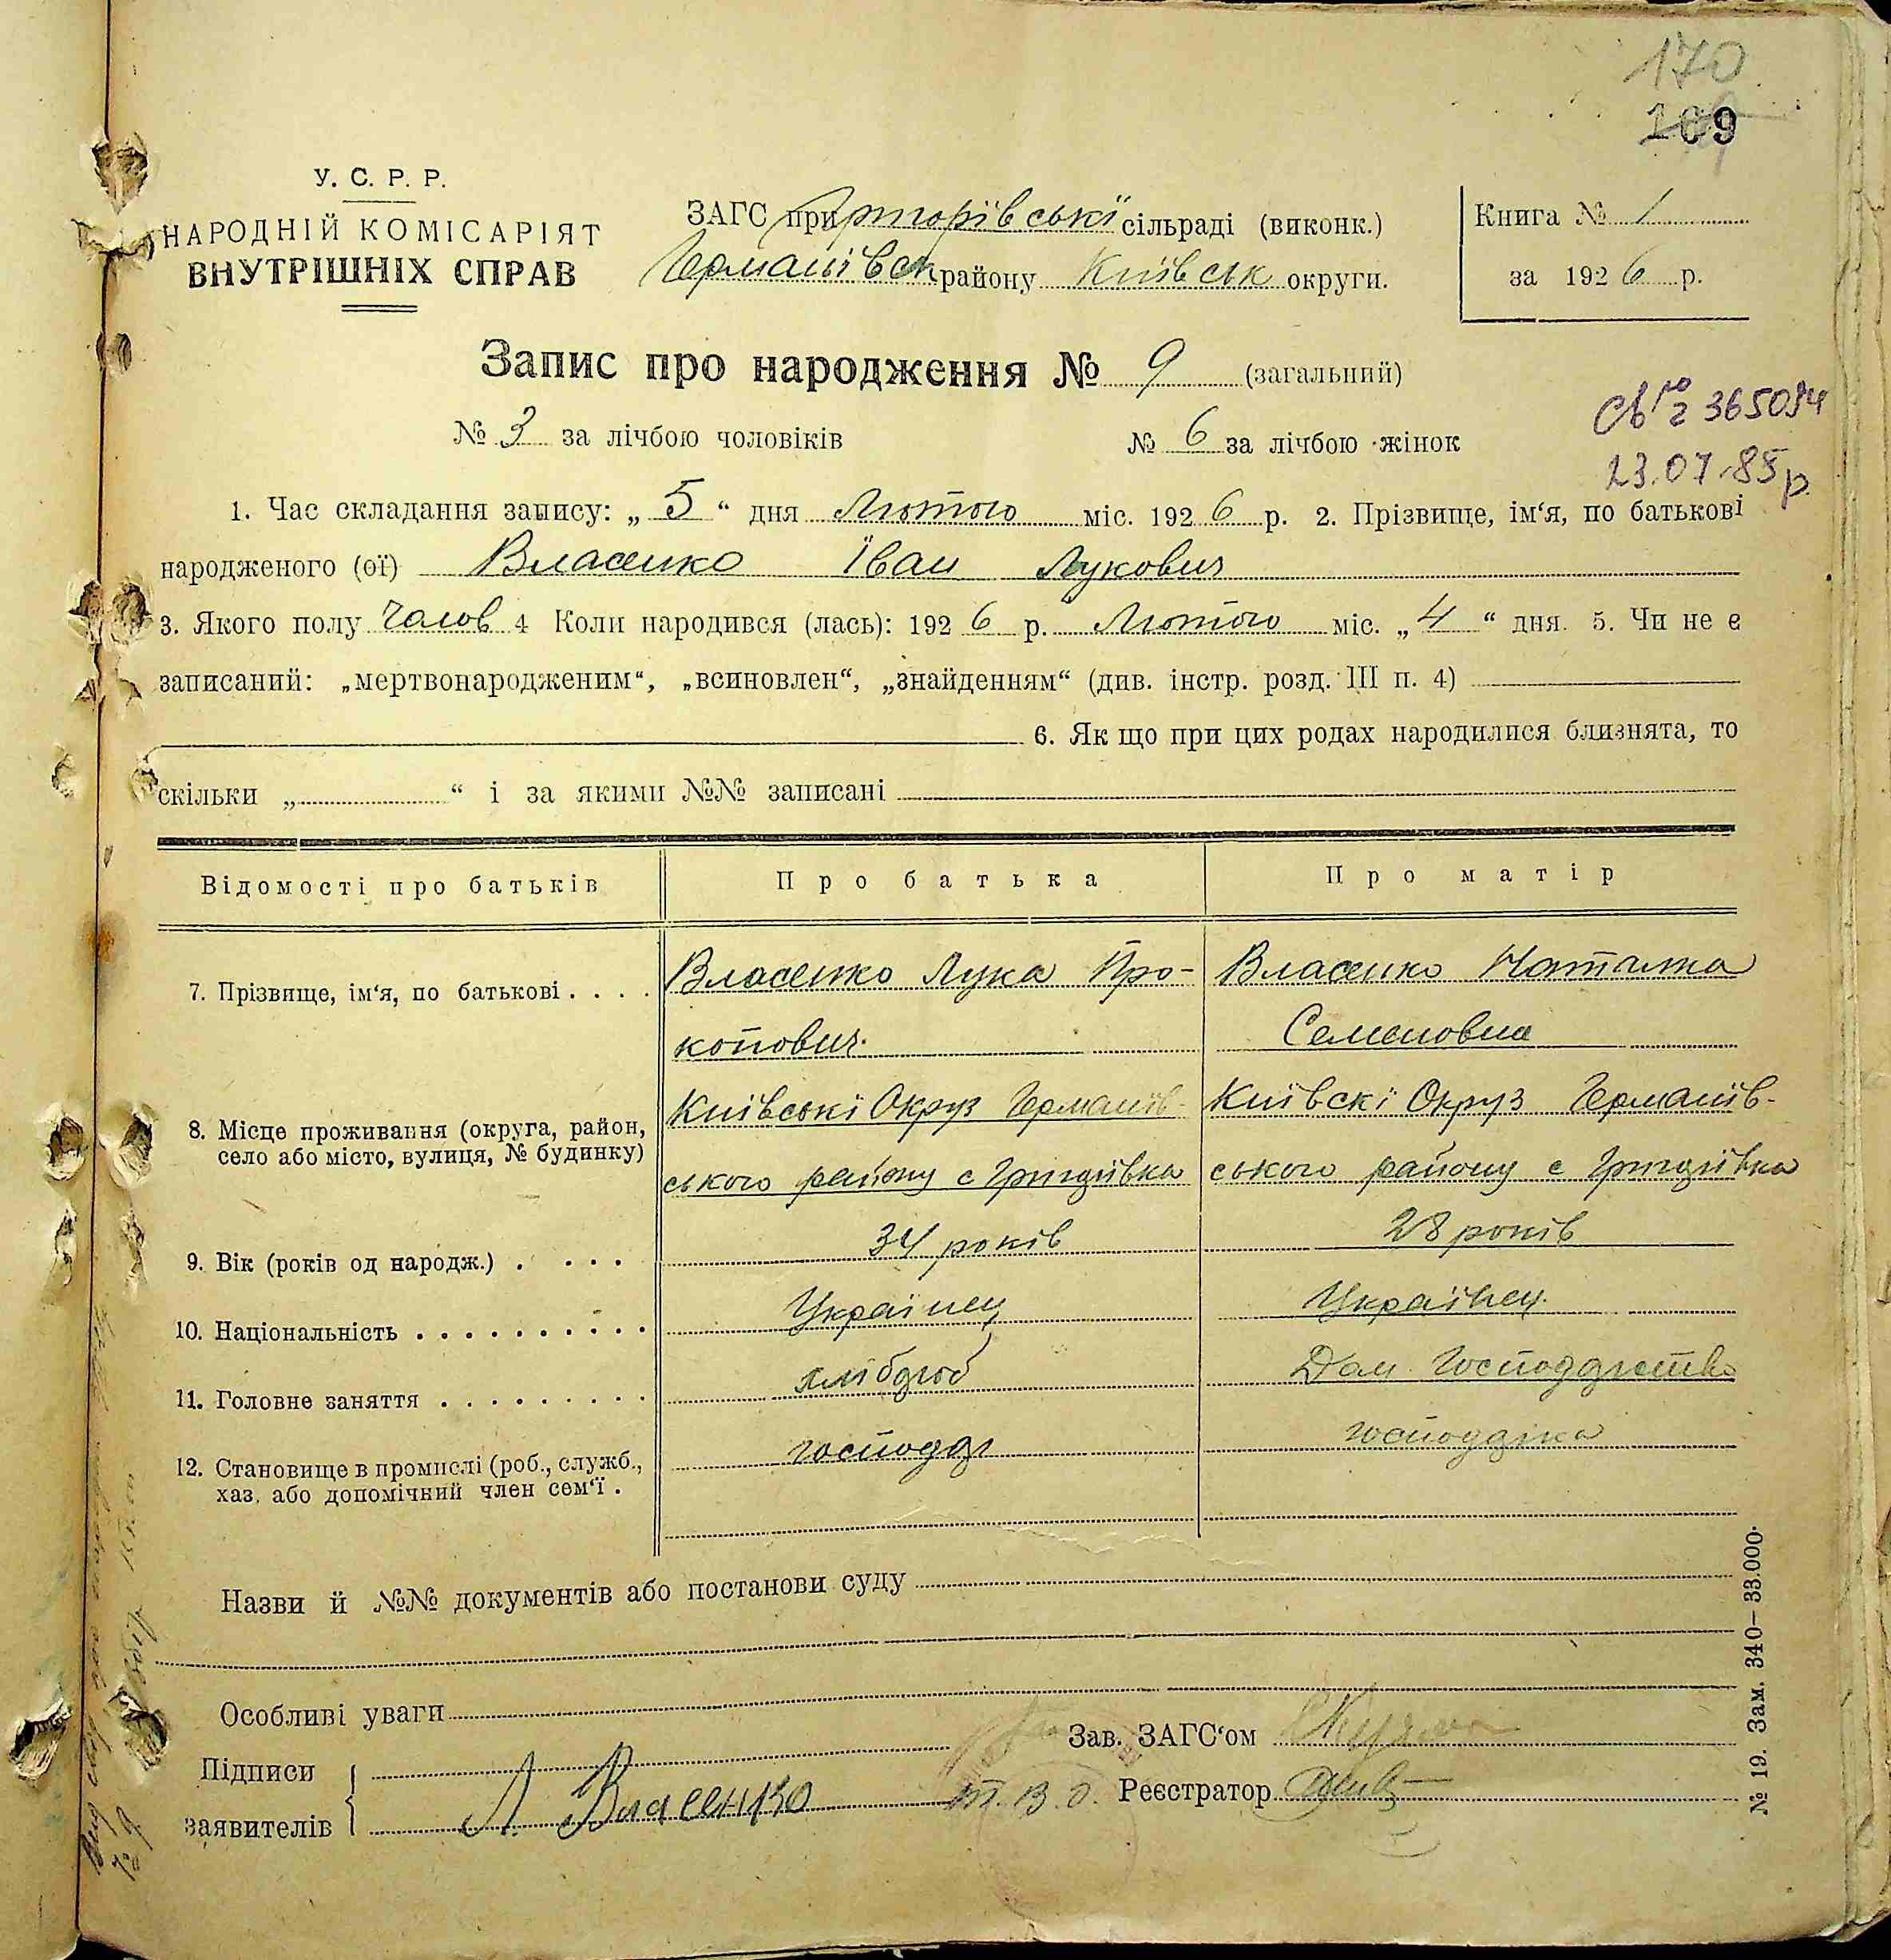 170
109
У. С. Р. Р.
НАРОДНІЙ КОМІСАРІЯТ
ВНУТРІШНІХ СПРАВ
ЗАГС при сільраді (виконк.)
Германівськ району Київськ округи.
Книга № 1
за 1926 р.
Запис про народження № 9 (загальний)
№ 3 за лічбою чоловіків № 6 за лічбою жінок
365094
23.07.85р
1. Час складання запису: „ 5 “ дня Лютого міс. 1926 р. 2. Прізвище, ім‘я, по батькові
народженого (ої) Власенко Іван Лукович
3. Якого полу Чолов 4 Коли народився (лась): 1926 р. Лютого міс. „ 4 “ дня. 5. Чи не є
записаний: „мертвонародженим“, „всиновлен“, „знайденням“ (див. інстр. розд. III п. 4)
6. Як що при цих родах народилися близнята, то
скільки „ “ і за якими №№ записані
Відомості про батьків Про батька Про матір
7. Прізвище, ім‘я, по батькові . . . . Власенко Лука Про- Власенко Наталка
копович. Семеновна
8. Місце проживання (округа, район, село або місто, вулиця, № будинку) Київські Округ Германів- Київскі Округ Германів-
ського району с Григорівка ського району с Григорівка
9. Вік (років од народж.) . . . . 34 років 28 років
10. Національність . . . . . . . . . . Українец Українец.
11. Головне заняття . . . . . . . . . хлібороб Дом. Господарство
12. Становище в промислі (роб., служб., хаз. або допомічний член сем‘ї . господар господарка
Назви й №№ документів або постанови суду
Особливі уваги
Зав. ЗАГС‘ом
Підписи
заявителів Л. Власенко
т.в.о. Реєстратор
№ 19. Зам. 340–33.000.